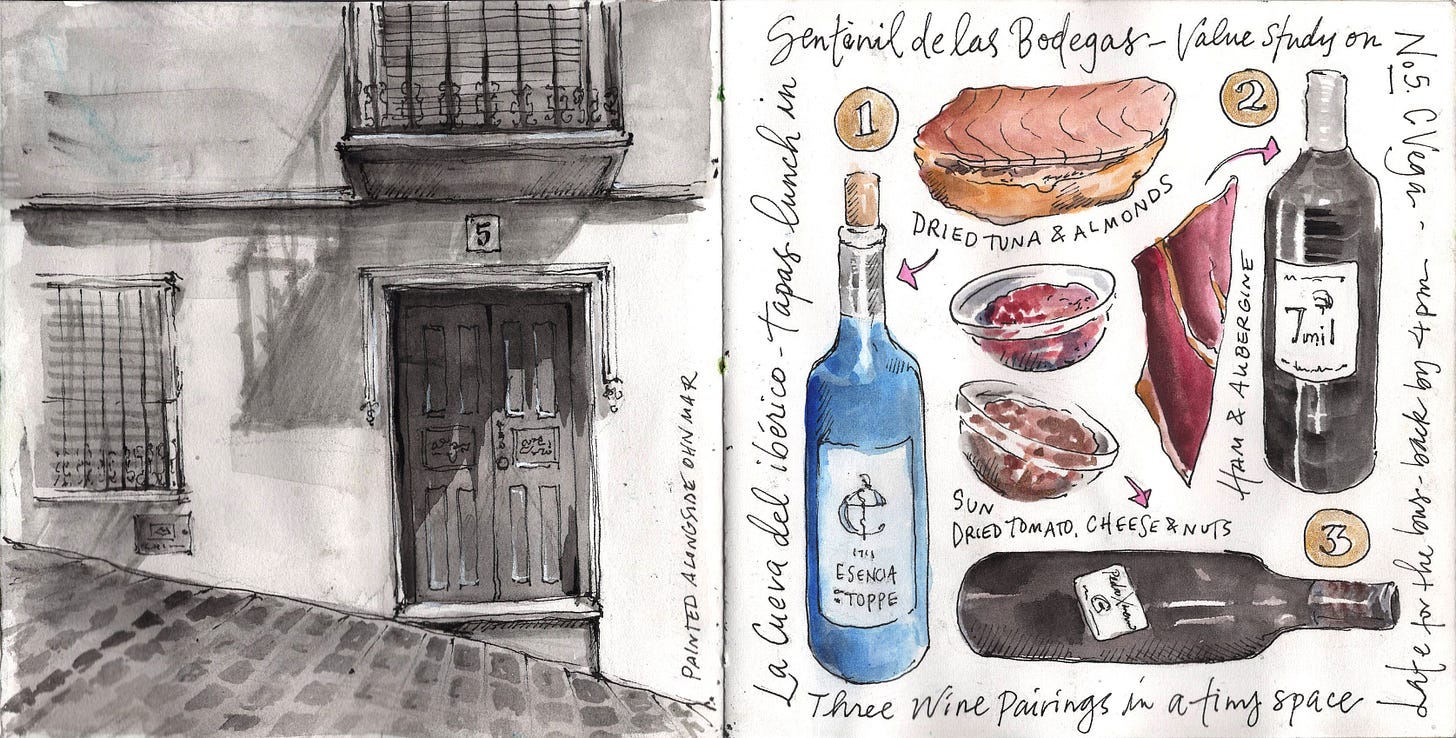 5
PAINTED ALONGSIDE OHN MAR
La Cueva del ibérico - tapas lunch in
Sentènil de las Bodegas - Value Study on
No.5 C Vega -
Late for the bus - back by 4pm
1
DRIED TUNA & ALMONDS
2
7mil
HAM & AUBERGINE
ESENCIA
TOPPE
SUN
DRIED TOMATO, CHEESE & NUTS
33
Three Wine Pairings in a tiny space